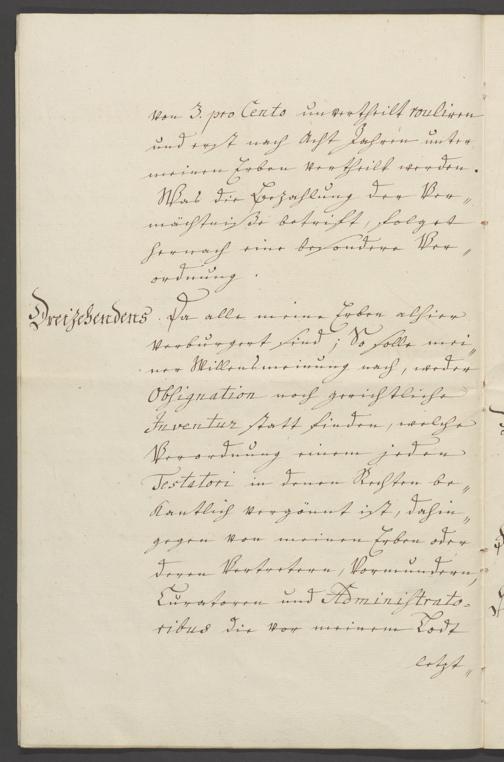 von 3. pro Cento unvertheilt rouliren
und erst nach Acht Jahren unter
meinen Erben vertheilt werden.
Was die Bezahlung der Ver„
mächtniße betrift, folget
hernach eine besondere Ver„
ordnung.
Dreizehendens. Da alle meine Erben alhier
verburgert sind; So solle mei„
ner Willensmeinung nach, weder
Obsignation noch gerichtliche
Inventur statt finden, welche
Verordnung einem jeden
Testatori in denen Rechten be„
kantlich vergönnt ist, dahin„
gegen von meinen Erben oder
deren Vertretern, Vormundern,
Curatoren und Administrato„
ribus die vor meinem Todt
letzt„